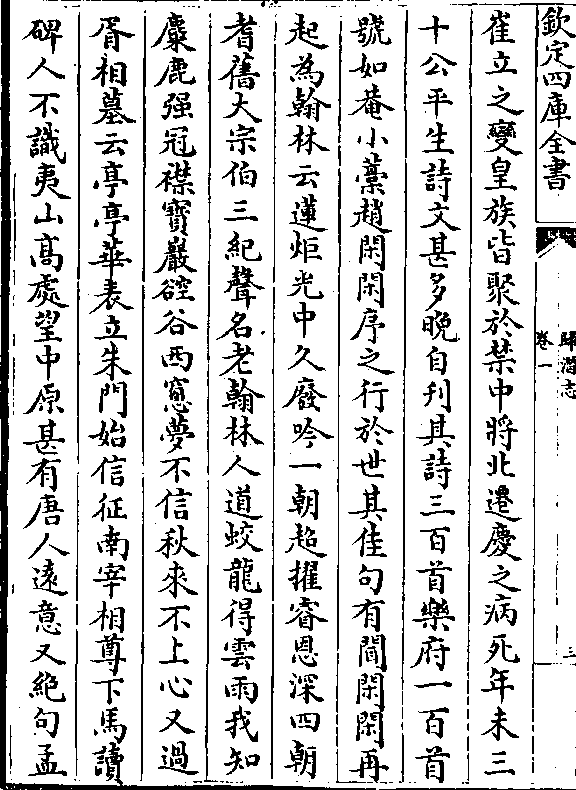 欽定四庫全書
歸潛志
卷一
三
崔立之變皇族皆聚於禁中將北遷慶之病死年未三
十公平生詩文甚多晚自刋其詩三百首樂府一百首
號如菴小藁趙閑閑序之行於世其佳句有聞閑閑再
起為翰林云蓮炬光中久廢吟一朝超擢睿恩深四朝
耆舊大宗伯三紀聲名老翰林人道蛟龍得雲雨我知
麋鹿强冠襟寶巖磴谷西窻夢不信秋來不上心又過
胥相墓云亭亭華表立朱門始信征南宰相尊下馬讀
碑人不識夷山髙處望中原甚有唐人逺意又絶句孟